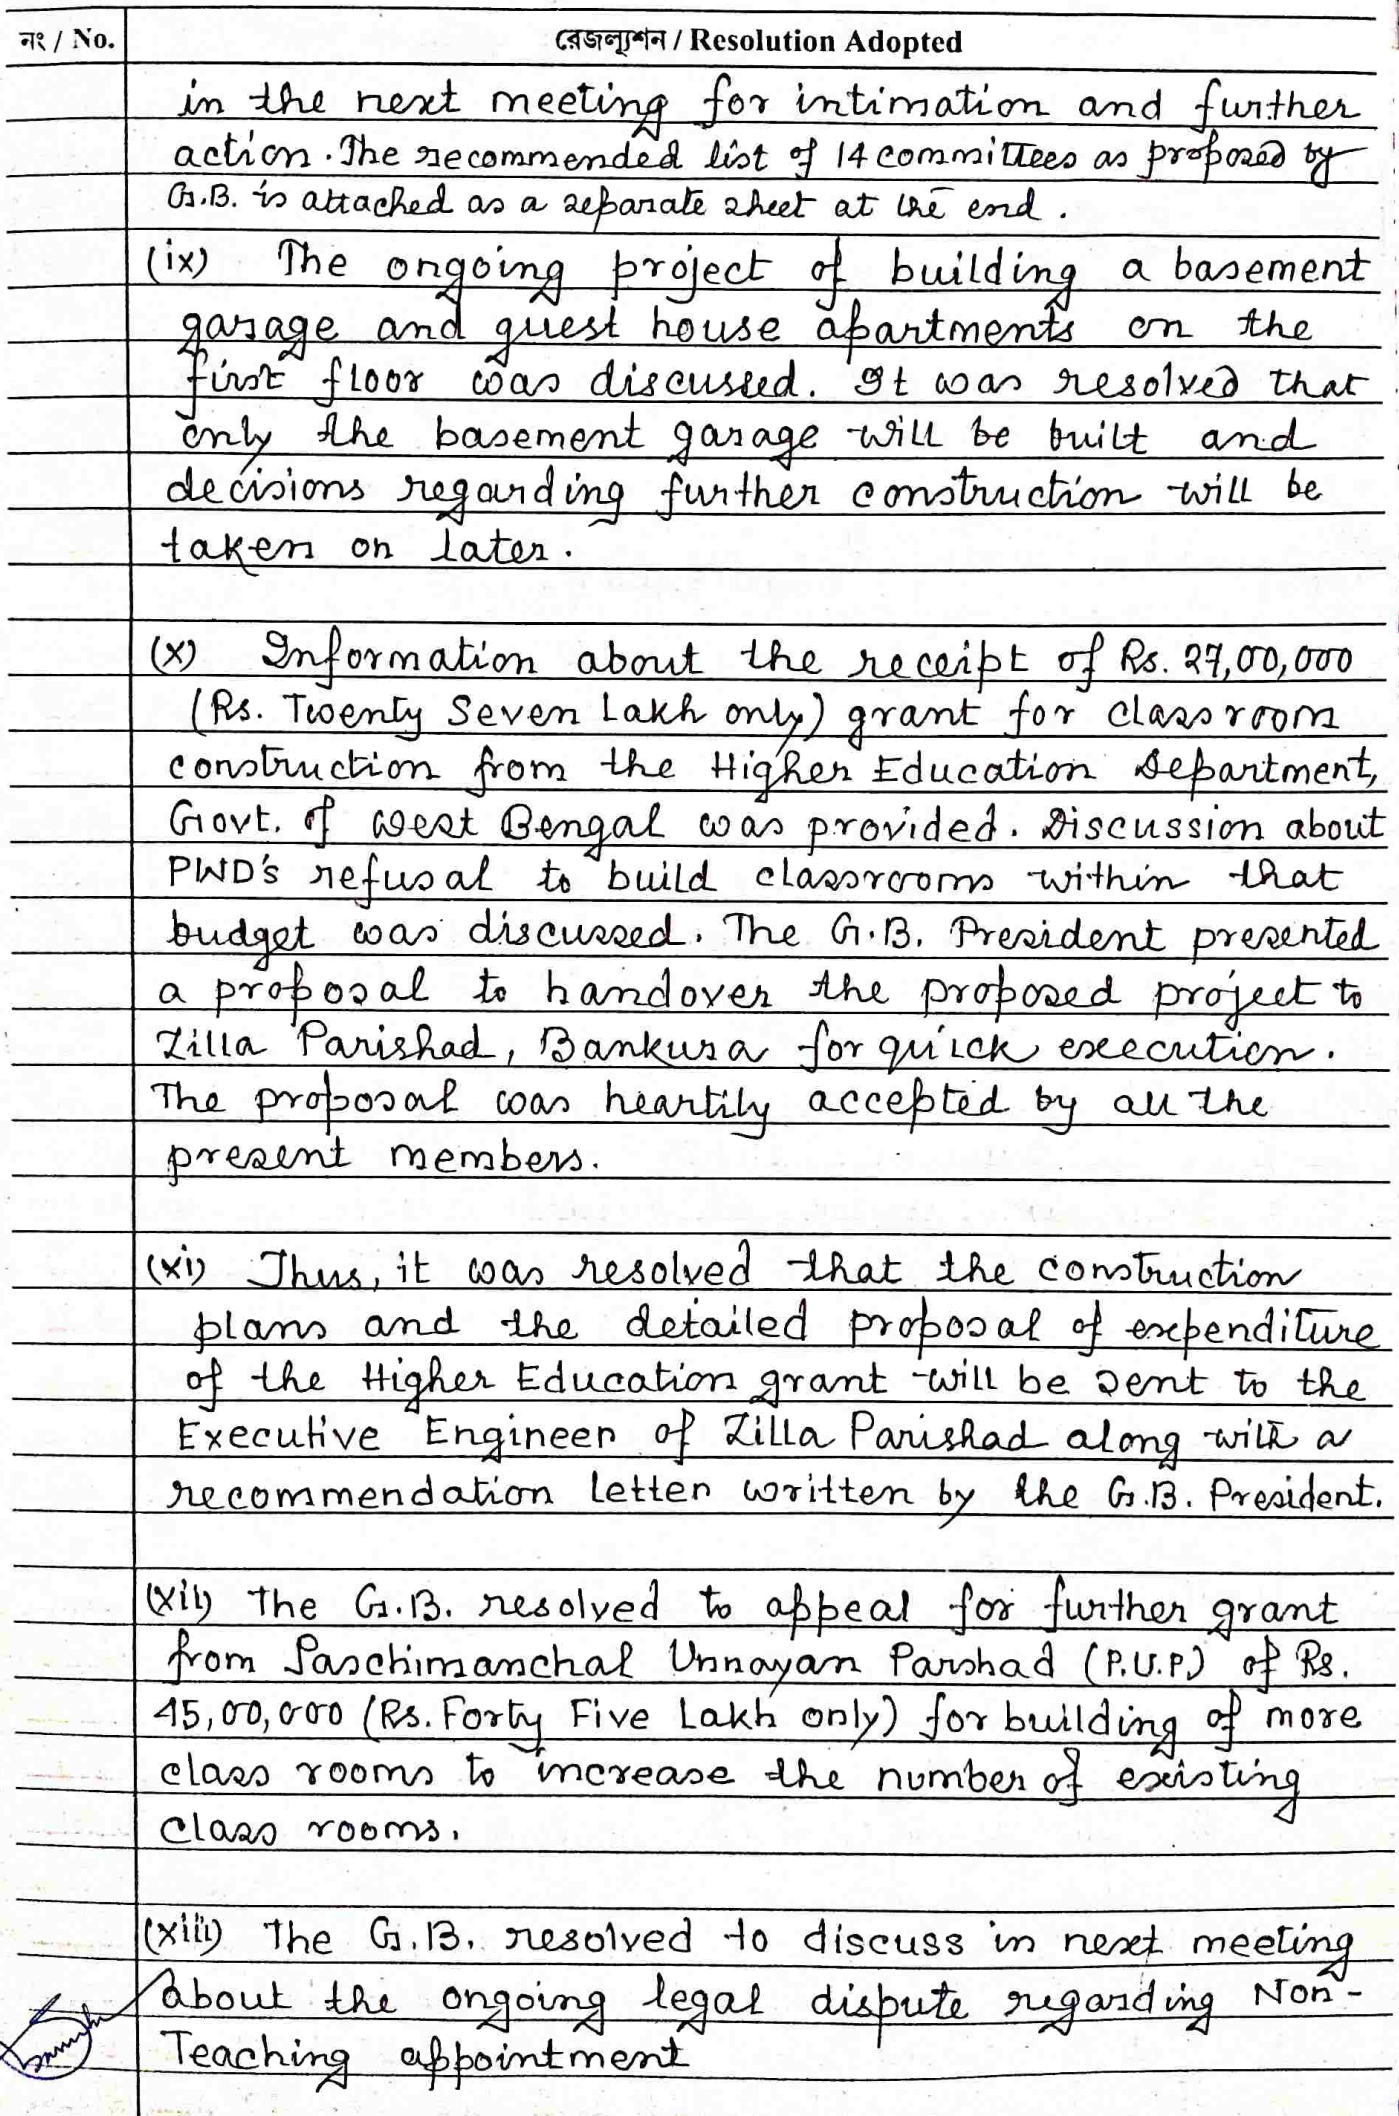 নং / No.
রেজল্যুশন / Resolution Adopted
in the next meeting for intimation and further
action. The recommended list of 14 committees as proposed by
G.B. is attached as a separate sheet at the end.
(ix) The ongoing project of building a basement
garage and guest house apartments on the
first floor was discussed. It was resolved that
only the basement garage will be built and
decisions regarding further construction will be
taken on later.
(x) Information about the receipt of Rs. 27,00,000
(Rs. Twenty Seven Lakh only) grant for classroom
construction from the Higher Education Department,
Govt. of West Bengal was provided. Discussion about
PWD's refusal to build classrooms within that
budget was discussed. The G.B. President presented
a proposal to handover the proposed project to
Zilla Parishad, Bankura for quick execution.
The proposal was heartily accepted by all the
present members.
(xi) Thus, it was resolved that the construction
plans and the detailed proposal of expenditure
of the Higher Education grant will be sent to the
Executive Engineer of Zilla Parishad along with a
recommendation letter written by the G.B. President.
(xii) The G.B. resolved to appeal for further grant
from Paschimanchal Unnayan Parshad (P.U.P.) of Rs.
45,00,000 (Rs. Forty Five Lakh only) for building of more
class rooms to increase the number of existing
class rooms.
(xiii) The G.B. resolved to discuss in next meeting
about the ongoing legal dispute regarding Non-
Teaching appointment